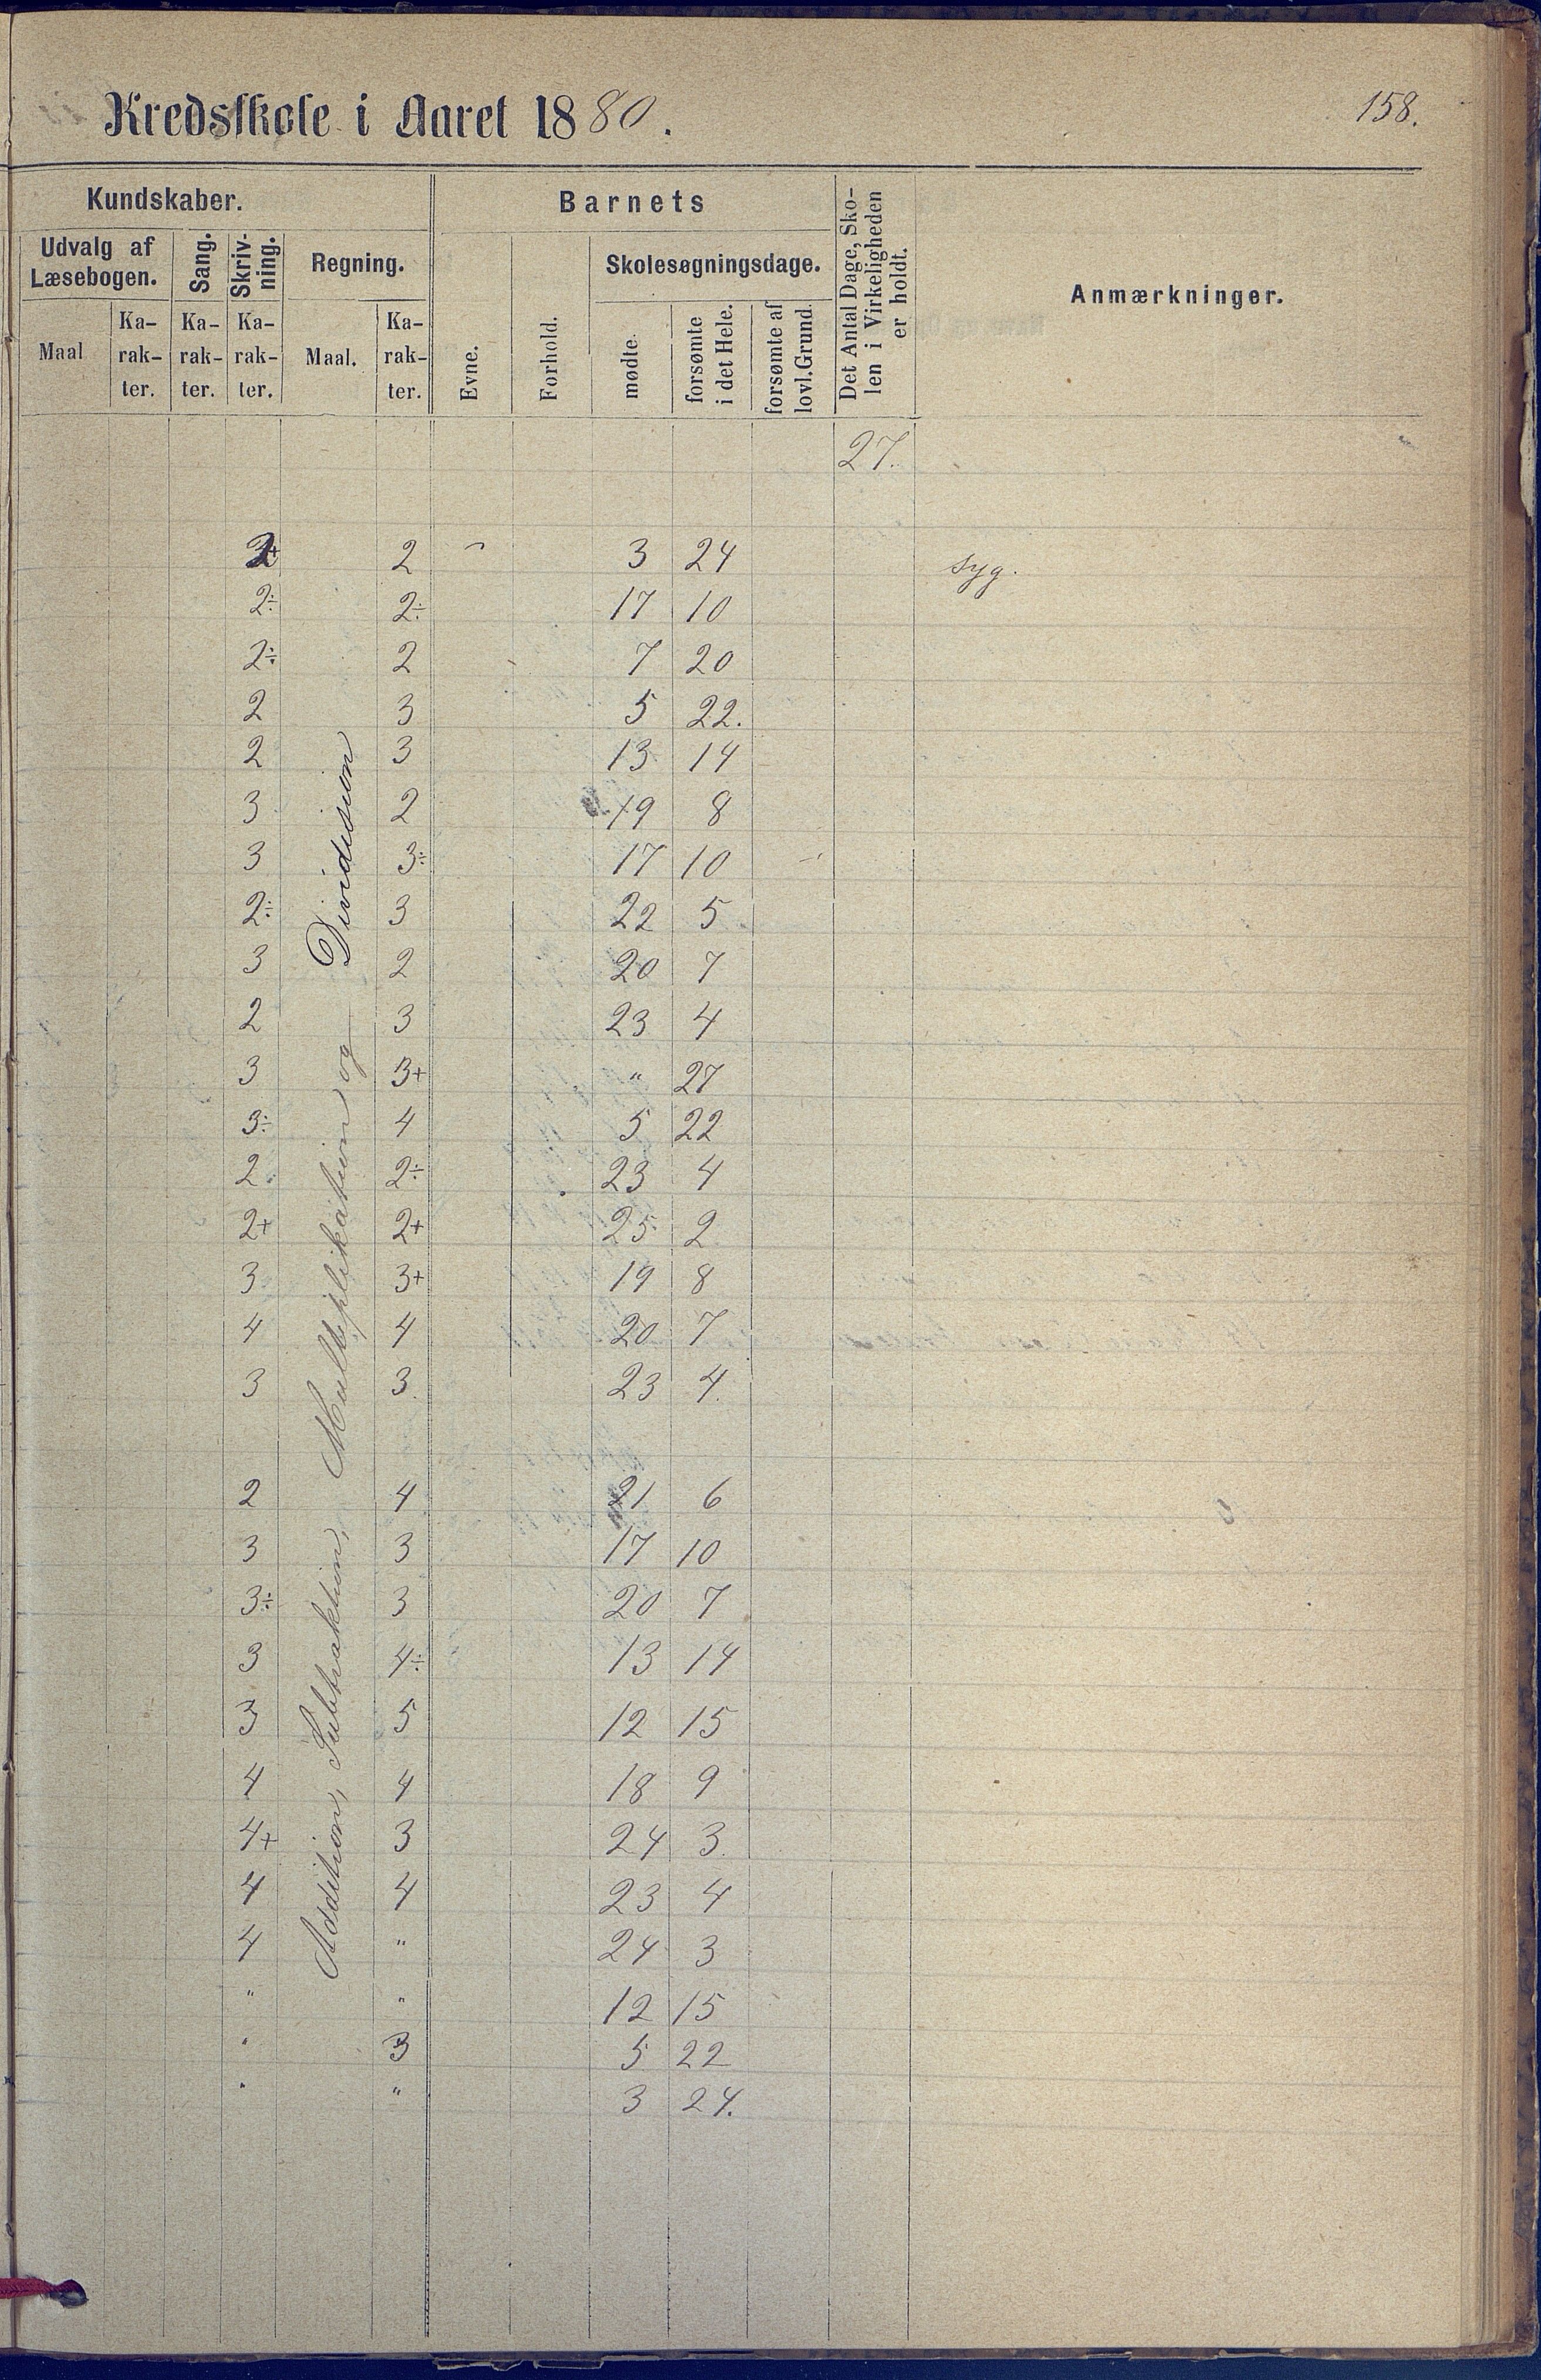 Kredsskole i Aaret 1880.
158.
Kundskaber.
Barnets
Det Antal Dage, Sko-
len i Virkeligheden
er holdt.
Anmærkninger.
Udvalg af
Læsebogen.
Sang.
Skriv-
ning.
Regning.
Skolesøgningsdage.
Maal
Ka-
rak-
ter.
Ka-
rak-
ter.
Ka-
rak-
ter.
Maal.
Ka-
rak-
ter.
Evne.
Forhold.
mødte
forsømte
i det Hele.
forsømte af
lovl. Grund.
27.
Addition, Subtraktion, Multiplikation og Dividision
2 3 24 syg.
2÷ 2÷ 17 10
2÷ 2 7 20
2 3 5 22.
2 3 13 14
3 2 19 8
3 3÷ 17 10
2÷ 3 22 5
3 2 20 7
2 3 23 4
3 3+ " 27
3÷ 4 5 22
2 2÷ 23 4
2+ 2+ 25 2
3 3+ 19 8
4 4 20 7
3 3. 23 4.
2 4 21 6
3 3 17 10
3÷ 3 20 7
3 4÷ 13 14
3 5 12 15
4 4 18 9
4+ 3 24 3
4 4 23 4
4 " 24 3
" " 12 15
" 3 5 22
" " 3 24.